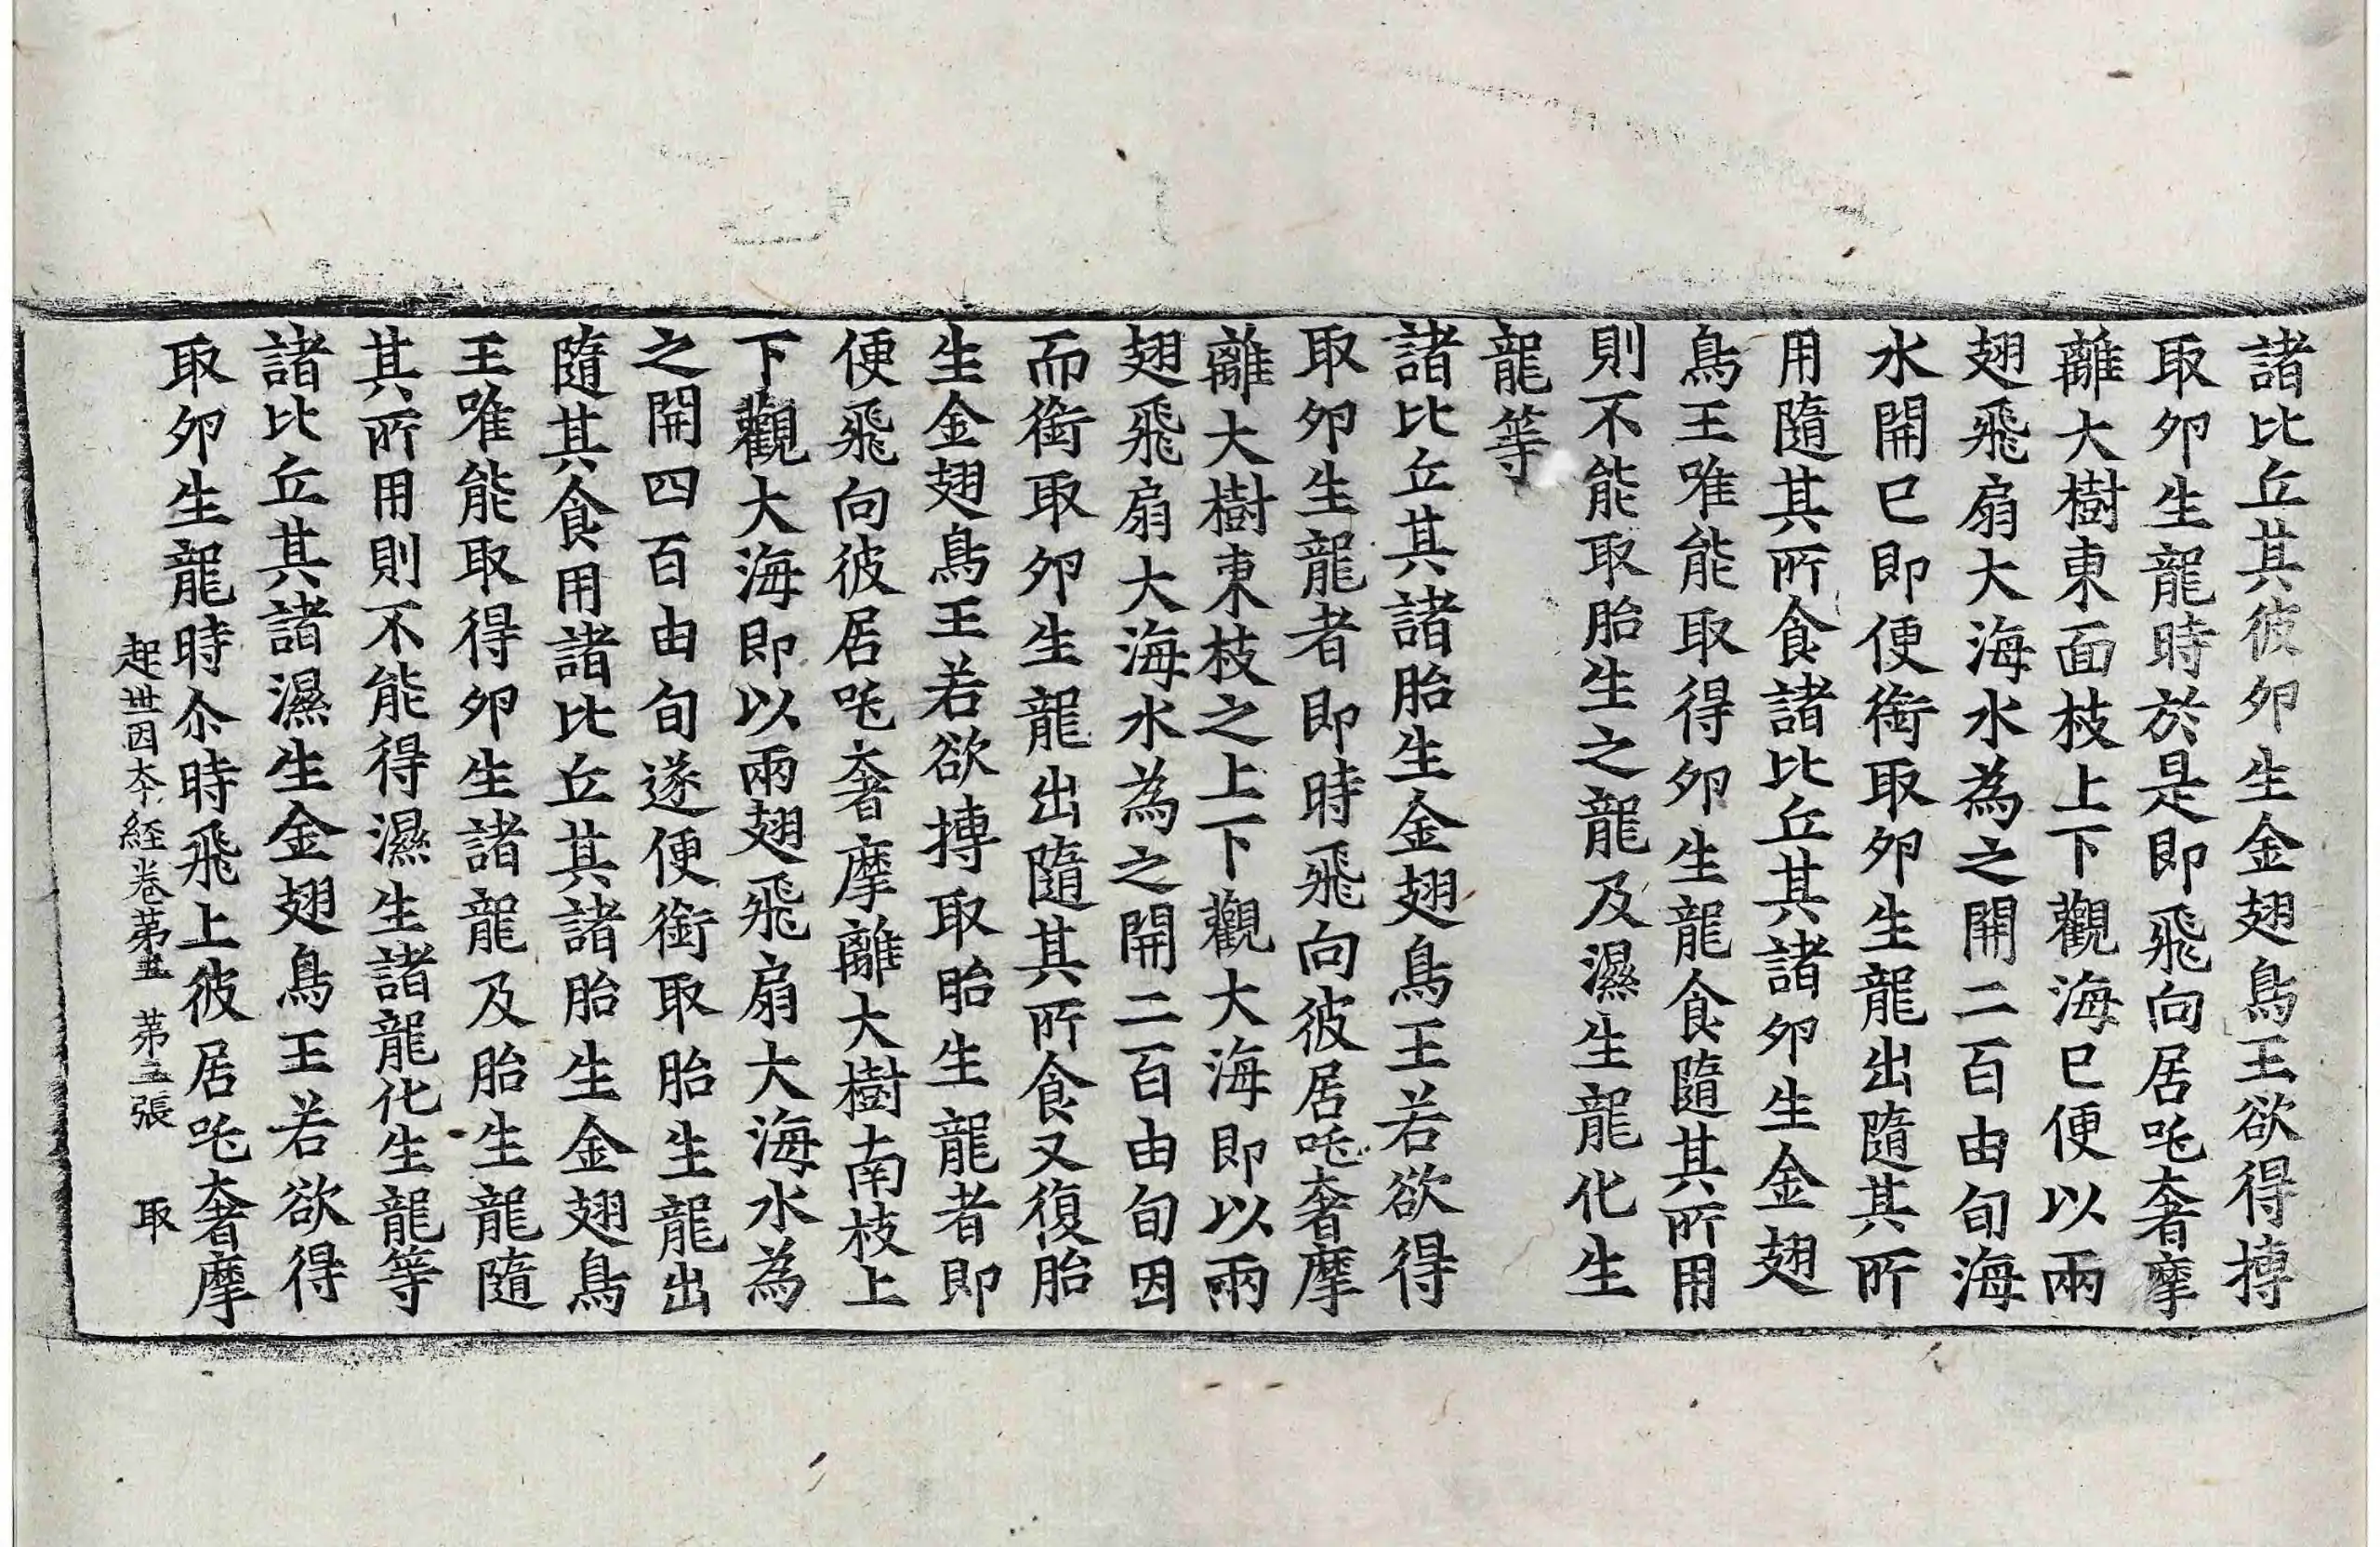 諸比丘其彼夘生金翅鳥王欲得摶
取夘生龍時於是即飛向居吒奢摩
離大樹東面枝上下觀海已便以兩
翅飛扇大海水為之開二百由旬海
水開已即便銜取夘生龍出隨其所
用隨其所食諸比丘其諸夘生金翅
鳥王唯能取得夘生龍食隨其所用
則不能取胎生之龍及濕生龍化生
龍等
諸比丘其諸胎生金翅鳥王若欲得
取夘生龍者即時飛向彼居吒奢摩
離大樹東枝之上下觀大海即以兩
翅飛扇大海水為之開二百由旬因
而銜取夘生龍出隨其所食又復胎
生金翅鳥王若欲摶取胎生龍者即
便飛向彼居吒奢摩離大樹南枝上
下觀大海即以兩翅飛扇大海水為
之開四百由旬遂便銜取胎生龍出
隨其食用諸比丘其諸胎生金翅鳥
王唯能取得夘生諸龍及胎生龍隨
其所用則不能得濕生諸龍化生龍等
諸比丘其諸濕生金翅鳥王若欲得
取夘生龍時尒時飛上彼居吒奢摩
起世因夲經卷苐五 苐三張 取